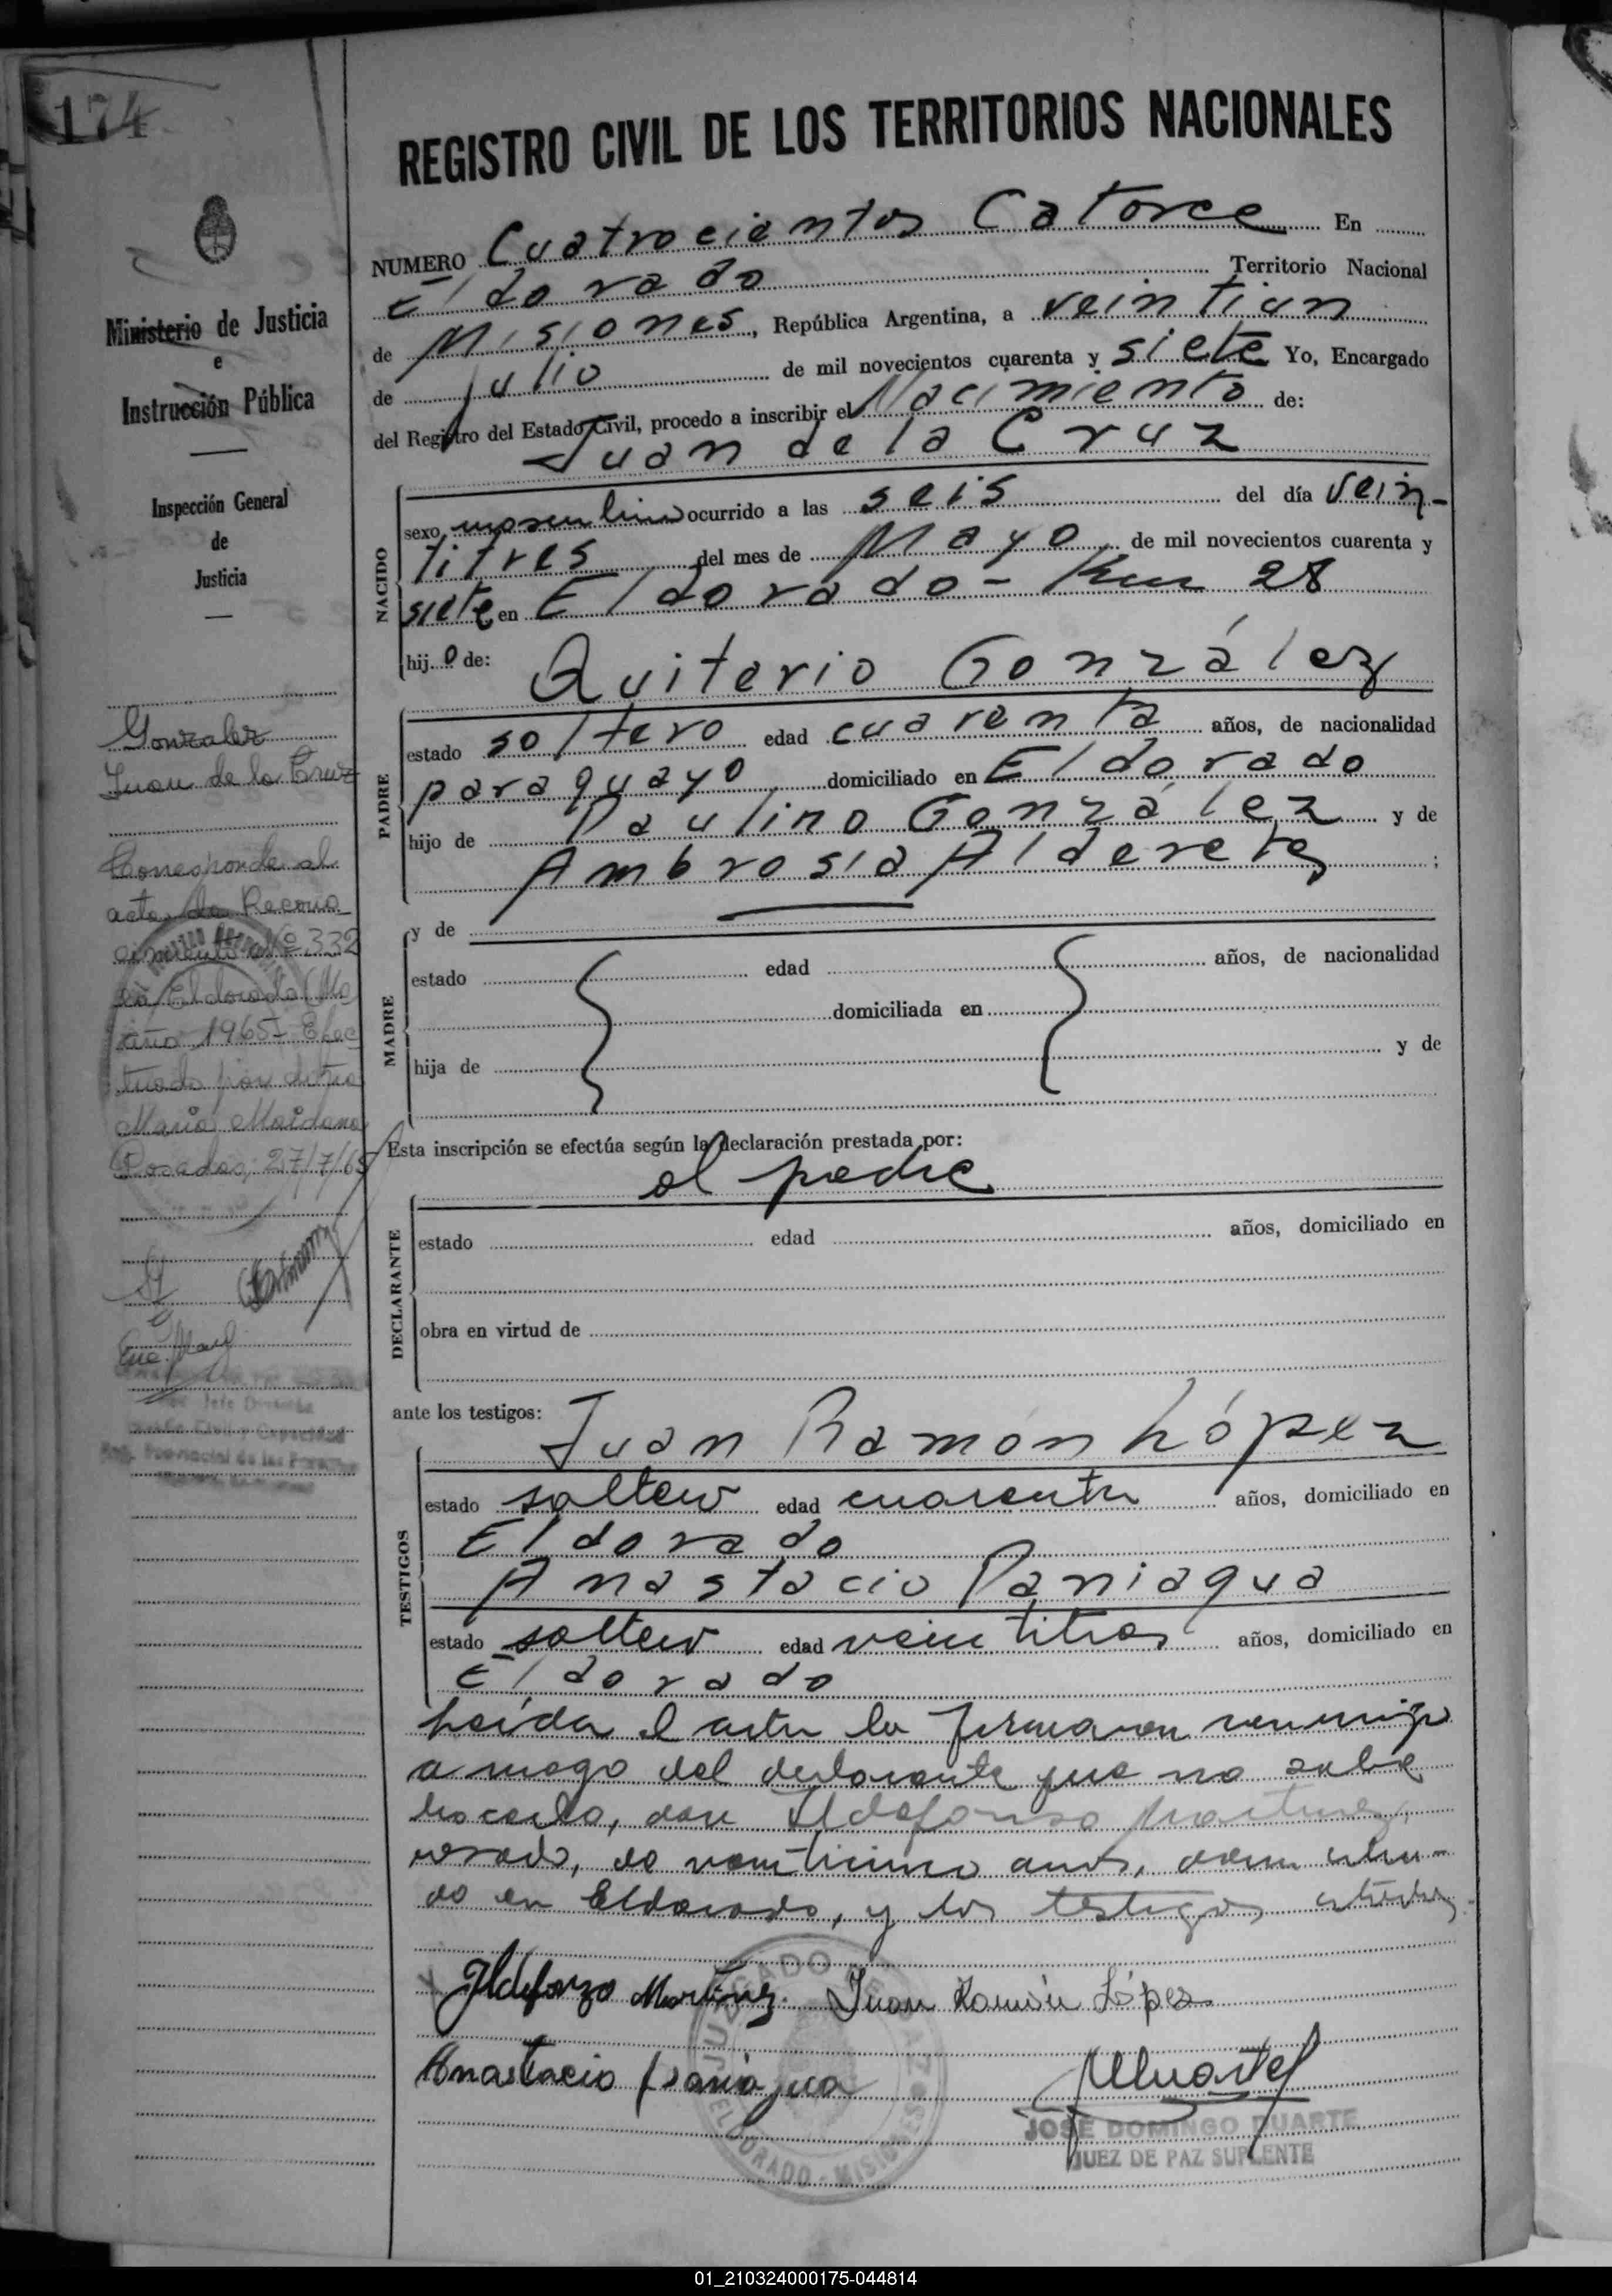 174
REGISTRO CIVIL DE LOS TERRITORIOS NACIONALES
NUMERO Cuatrocientos Catorce En
Eldorado Territorio Nacional
de Misiones, República Argentina, a veintiun
de julio de mil novecientos cuarenta y siete Yo, Encargado
del Registro del Estado Civil, procedo a inscribir el Nacimiento de:
Juan de la Cruz
Ministerio de Justicia
e
Instrucción Pública
Inspección General
de
Justicia
Gonzalez
Juan de la Cruz
Corresponde al
acta de Recono
cimiento Nº 332
Eldorado
año 1965 Efec
tuado por
Maria Maidana
Posadas, 27/7/65
NACIDO
sexo masculino ocurrido a las seis del día vein-
titres del mes de Mayo de mil novecientos cuarenta y
siete en Eldorado - Km 28
hij o de: Quiterio González
PADRE
estado soltero edad cuarenta años, de nacionalidad
paraguayo domiciliado en Eldorado
hijo de Paulino González y de
Ambrosia Alderete ;
MADRE
y de
estado edad años, de nacionalidad
domiciliada en
hija de y de
Esta inscripción se efectúa según la declaración prestada por:
el padre
DECLARANTE
estado edad años, domiciliado en
obra en virtud de
ante los testigos: Juan Ramón López
TESTIGOS
estado soltero edad cuarenta años, domiciliado en
Eldorado
Anastacio Paniagua
estado soltero edad veintitres años, domiciliado en
Eldorado
Leída el acta la firmaron conmigo
a ruego del declarante que no sabe
hacerlo, don Ildefonso Martinez,
casado, de veinticinco años, domicilia-
do en Eldorado, y los testigos
Ildefonzo Martinez. Juan Ramón López
Anastacio Paniagua
JUZGADO DE PAZ
ELDORADO - MISIONES
JOSE DOMINGO DUARTE
JUEZ DE PAZ SUPLENTE
01_210324000175-044814